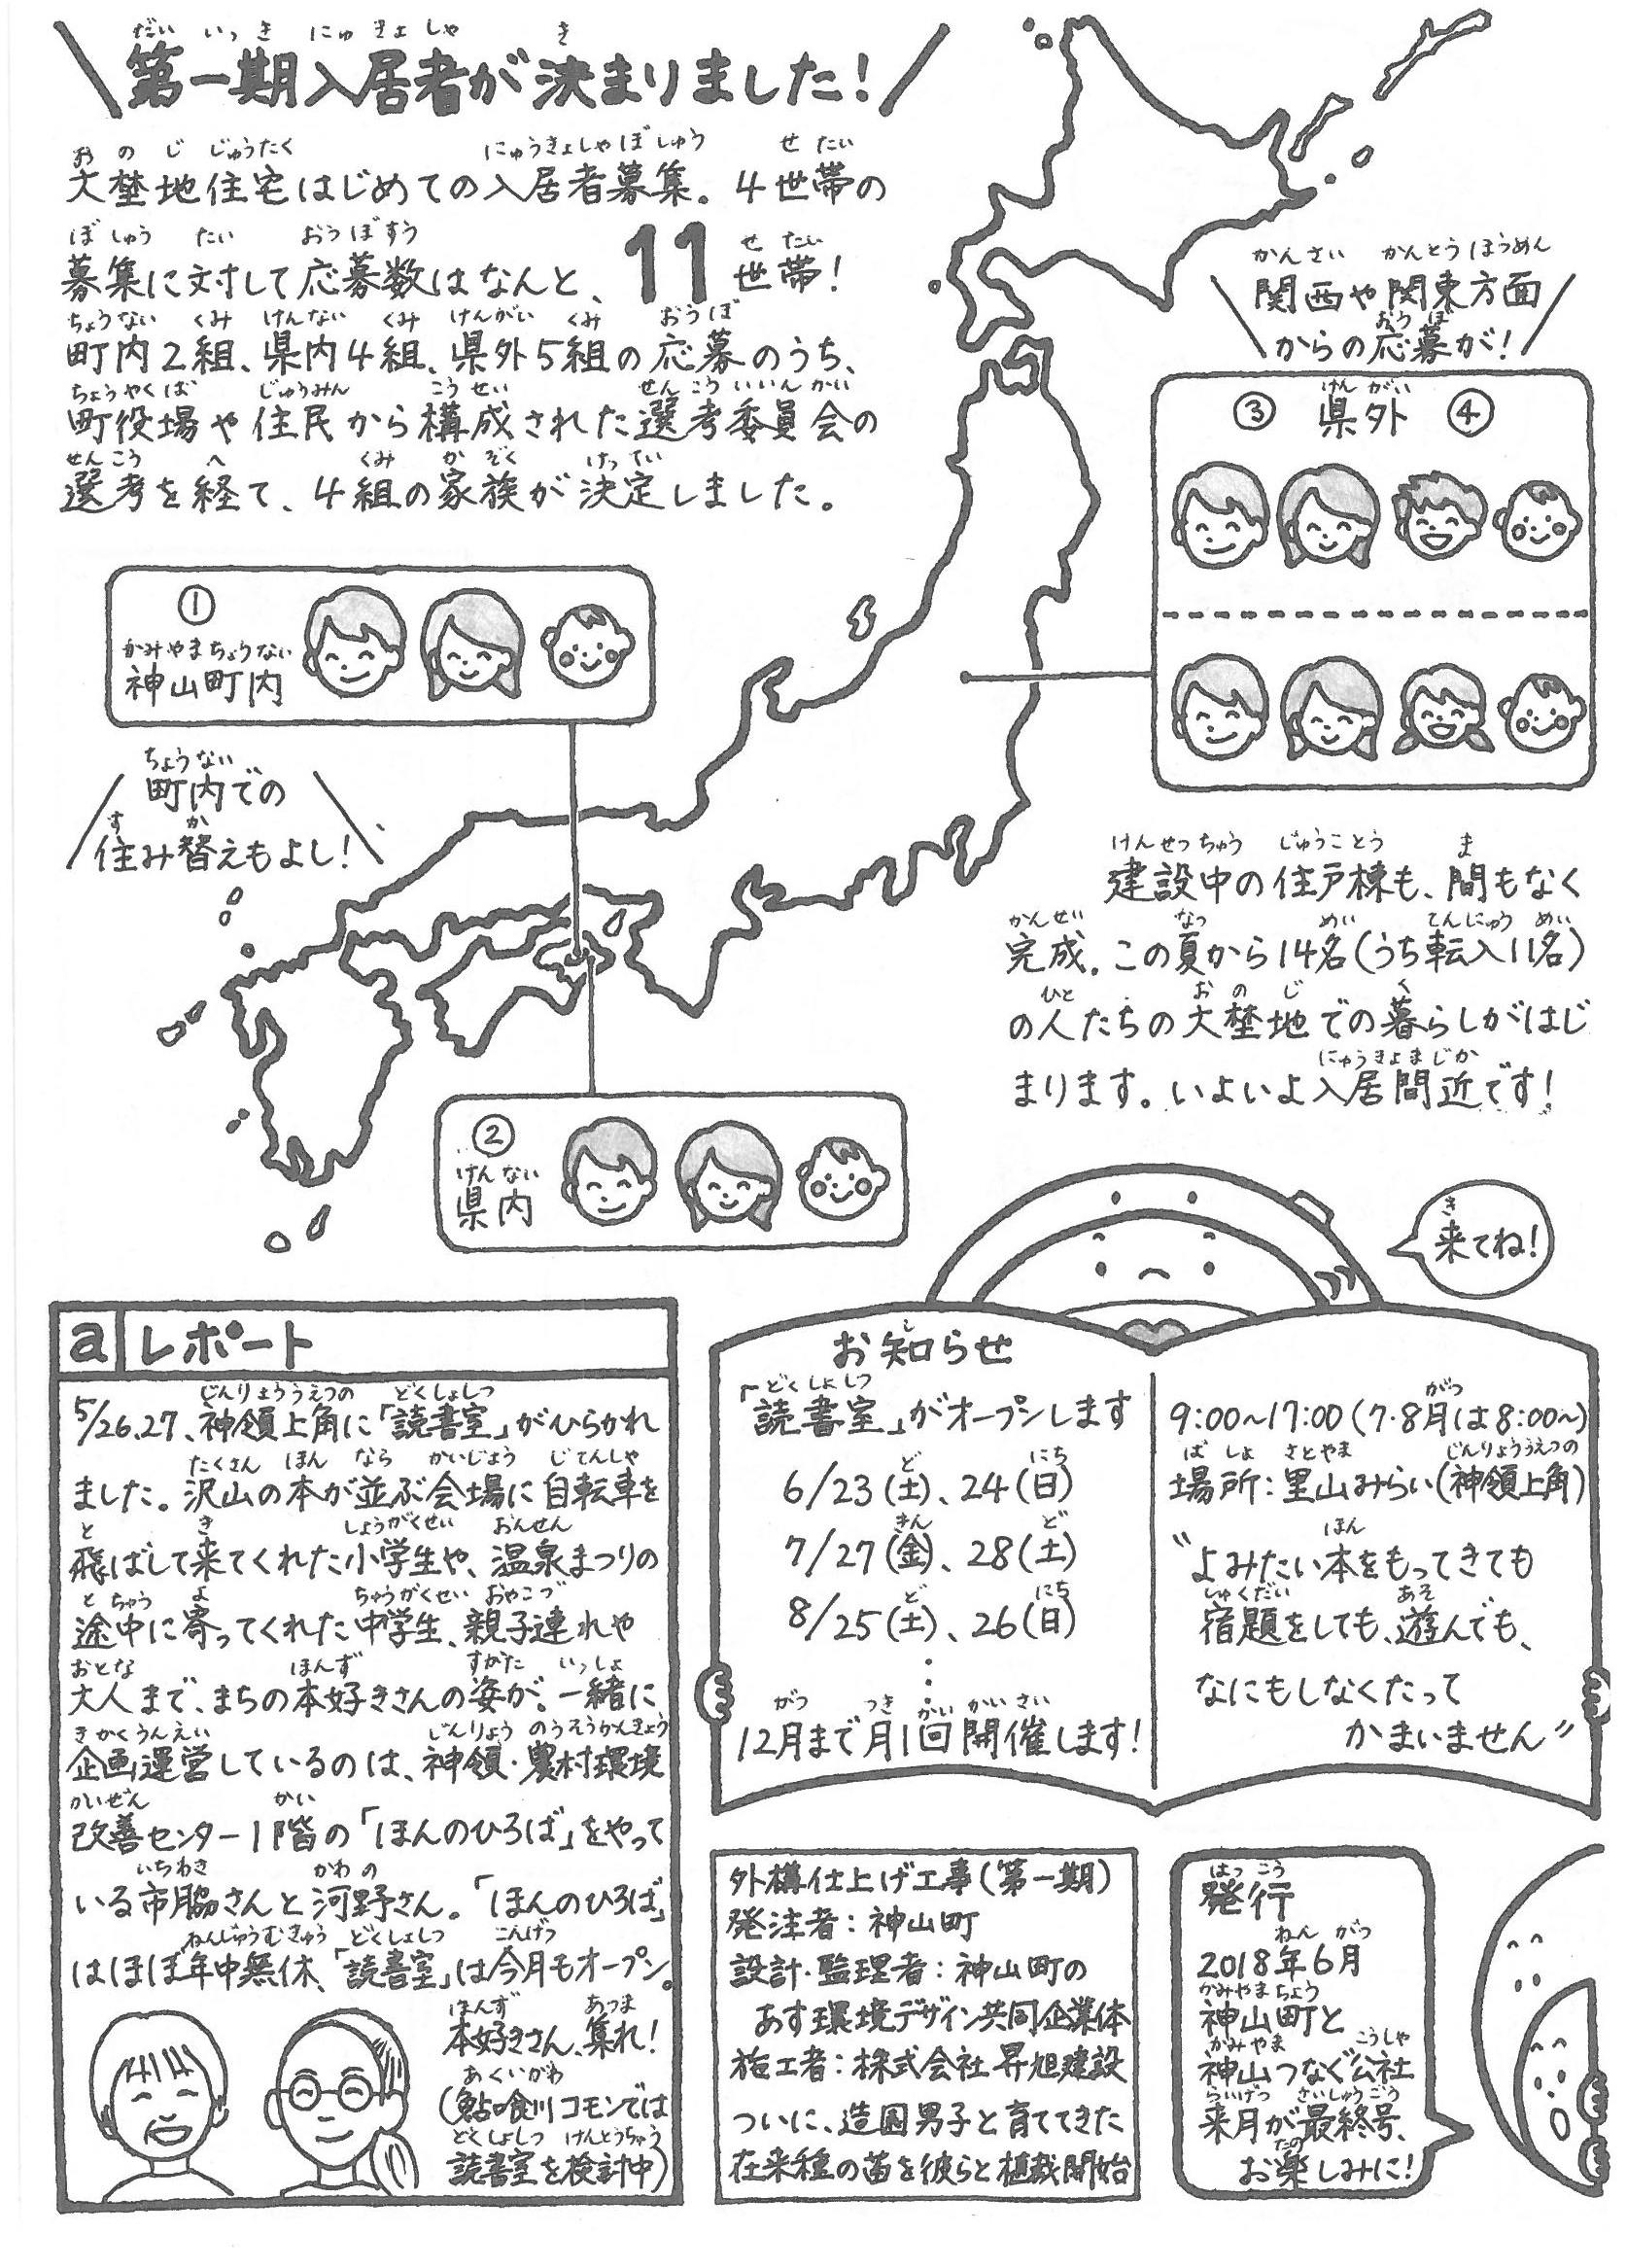 第一期入居者が決まりました!
大埜地住宅はじめての入居者募集。4世帯の
募集に対して応募数はなんと、11世帯!
町内2組、県内4組、県外5組の応募のうち、
町役場や住民から構成された選考委員会の
選考を経て、4組の家族が決定しました。
関西や関東方面
からの応募が!
③ 県外 ④
①
神山町内
町内での
住み替えもよし!
②
県内
建設中の住戸棟も、間もなく
完成。この夏から14名(うち転入11名)
の人たちの大埜地での暮らしがはじ
まります。いよいよ入居間近です!
来てね!
a レポート
5/26、27、神領上角に「読書室」がひらかれ
ました。沢山の本が並ぶ会場に自転車を
飛ばして来てくれた小学生や、温泉まつりの
途中に寄ってくれた中学生、親子連れや
大人まで、まちの本好きさんの姿が。一緒に
企画運営しているのは、神領・農村環境
改善センター1階の「ほんのひろば」をやって
いる市脇さんと河野さん。「ほんのひろば」
はほぼ年中無休、「読書室」は今月もオープン。
本好きさん、集れ!
(鮎喰川コモンでは
読書室を検討中)
お知らせ
「読書室」がオープンします
6/23(土)、24(日)
7/27(金)、28(土)
8/25(土)、26(日)
⋮
12月まで月1回開催します!
9:00~17:00(7・8月は8:00~)
場所:里山みらい(神領上角)
〝よみたい本をもってきても
宿題をしても、遊んでも、
なにもしなくたって
かまいません〟
外構仕上げ工事(第一期)
発注者:神山町
設計・監理者:神山町の
あす環境デザイン共同企業体
施工者:株式会社昇旭建設
ついに、造園男子と育ててきた
在来種の苗を彼らと植栽開始
発行
2018年6月
神山町と
神山つなぐ公社
来月が最終号、
お楽しみに!